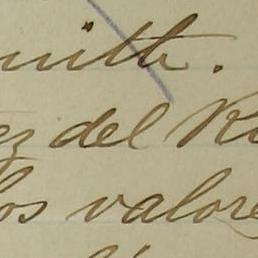 mith.
ez del R
los valore